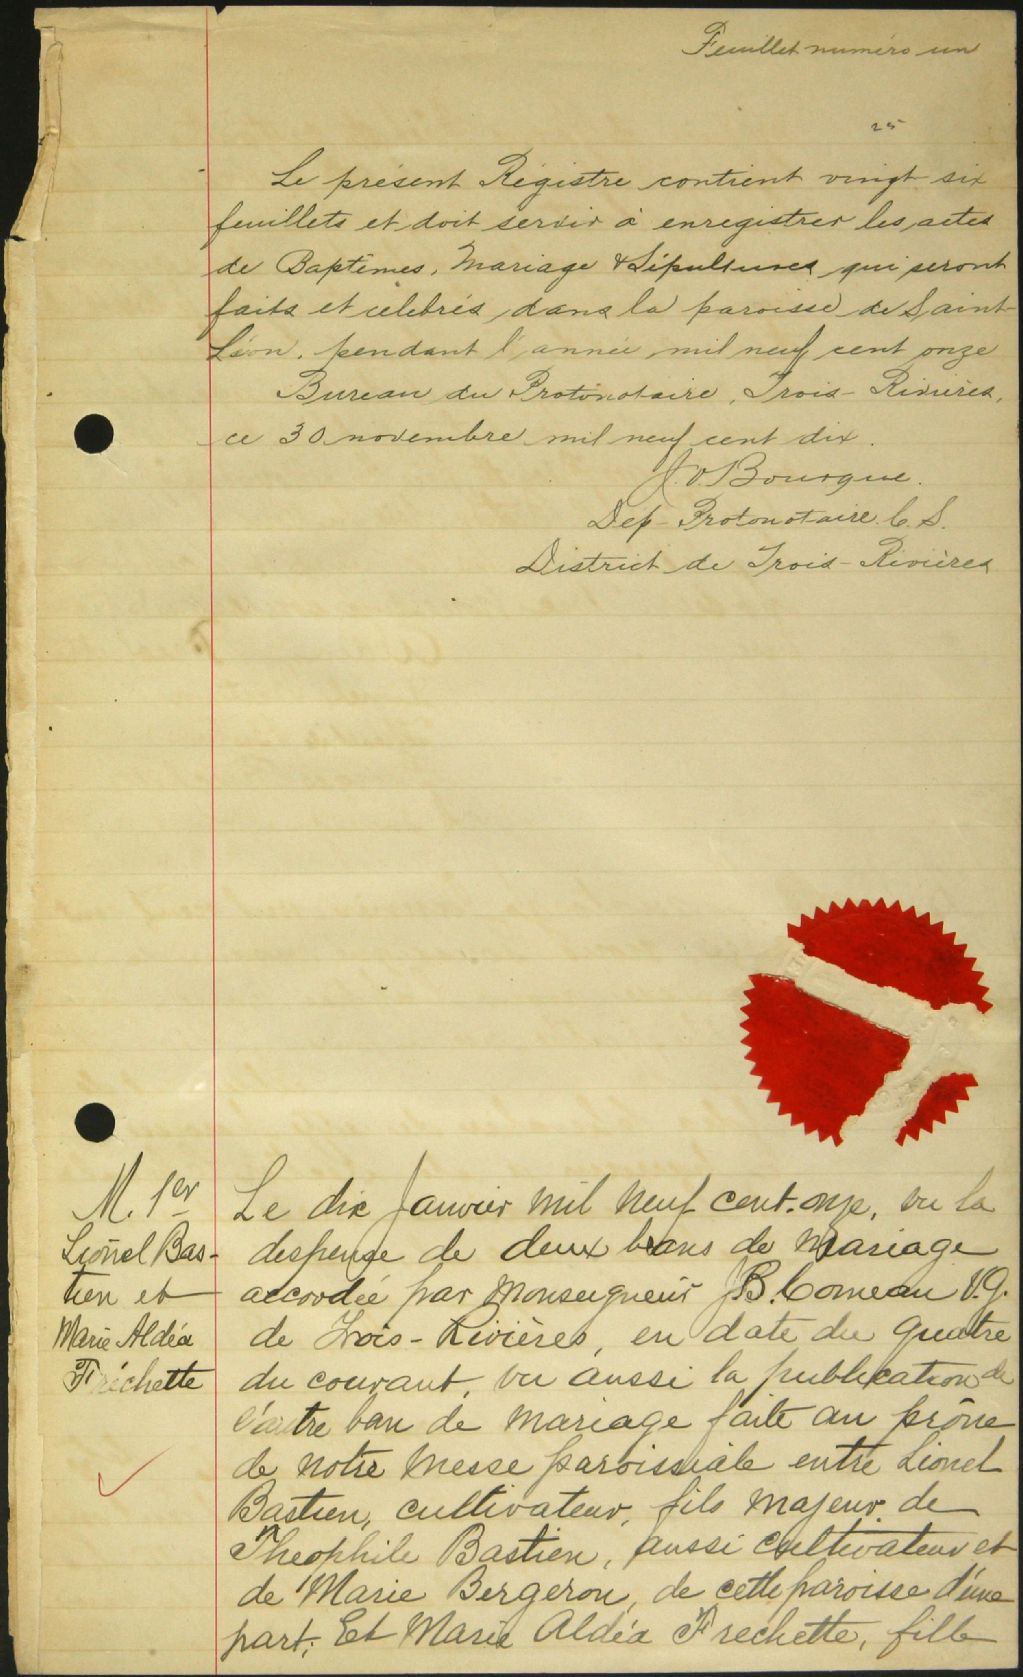 Feuillet numéro un
25
Le présent Régistre contient vingt six
feuillets et doit servir à enregistrer les actes
de Baptêmes, Mariage & Sépultures qui seront
faits et célébrés dans la paroisse de Saint-
Léon, pendant l'année mil neuf cent onze
Bureau du Protonotaire, Trois-Rivières,
ce 30 novembre mil neuf cent dix.
J. V. Bourque.
Dep-Protonotaire C. S.
District de Trois-Rivières
M. 1er
Lionel Bas-
tien et
Marie Aldéa
Fréchette
Le dix Janvier mil neuf cent-onze, vu la
despense de deux bans de mariage
accordée par Monseigneur J.B. Comeau V.G.
de Trois-Rivières, en date du quatre
du courant, vu aussi la publication de
l'autre ban de mariage faite au prône
de notre messe paroissiale entre Lionel
Bastien, cultivateur, fils majeur de
Théophile Bastien, aussi cultivateur et
de Marie Bergeron, de cette paroisse d'une
part; Et Marie Aldéa Frechette, fille